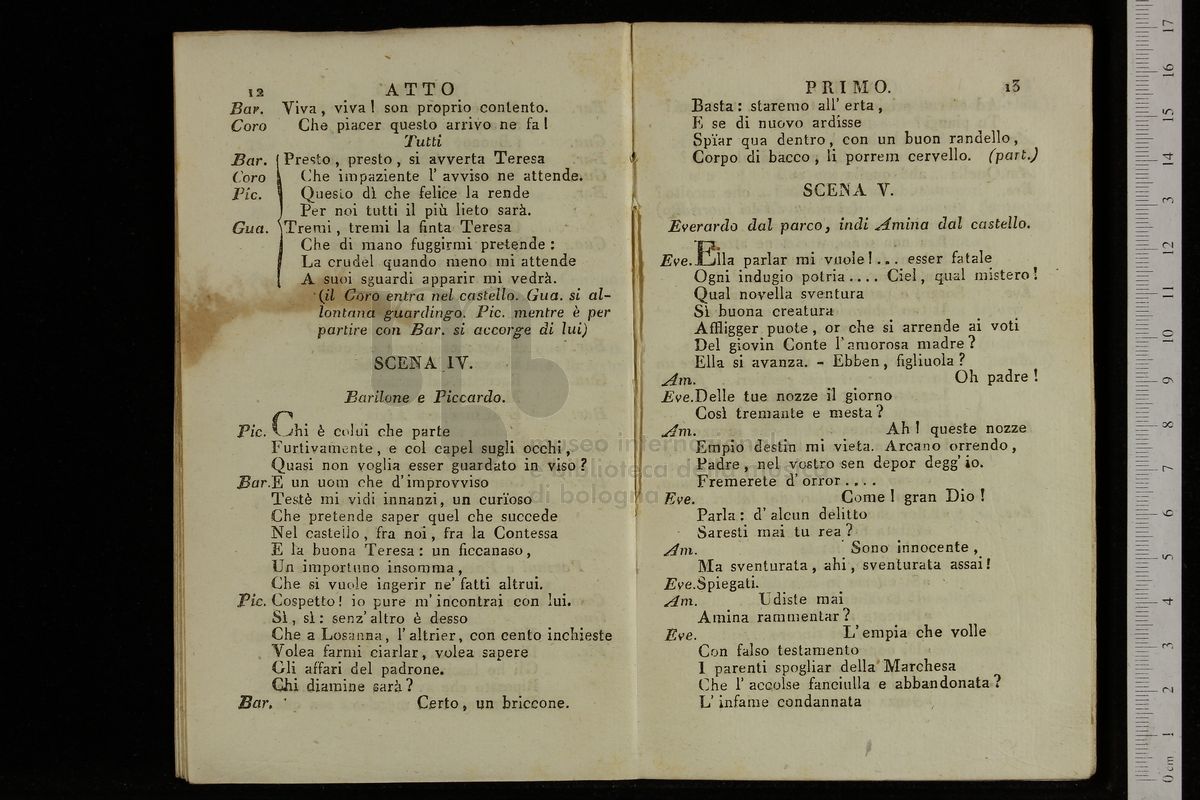 12 ATTO
Bar. Viva, viva! son proprio contento.
Coro Che piacer questo arrivo ne fa!
Tutti
Bar. Presto, presto, si avverta Teresa
Coro Che impaziente l' avviso ne attende.
Pic. Questo dì che felice la rende
Per noi tutti il più lieto sarà.
Gua. Tremi, tremi la finta Teresa
Che di mano fuggirmi pretende:
La crudel quando meno mi attende
A suoi sguardi apparir mi vedrà.
(il Coro entra nel castello. Gua. si al-
lontana guardingo. Pic. mentre è per
partire con Bar. si accorge di lui)
SCENA IV.
Barilone e Piccardo.
Pic. Chi è colui che parte
Furtivamente, e col capel sugli occhi,
Quasi non voglia esser guardato in viso?
Bar. E un uom che d'improvviso
Testè mi vidi innanzi, un curïoso
Che pretende saper quel che succede
Nel castello, fra noi, fra la Contessa
E la buona Teresa: un ficcanaso,
Un importuno insomma,
Che si vuole ingerir ne' fatti altrui.
Pic. Cospetto! io pure m'incontrai con lui.
Sì, sì: senz'altro è desso
Che a Losanna, l'altrier, con cento inchieste
Volea farmi ciarlar, volea sapere
Gli affari del padrone.
Chi diamine sarà?
Bar. Certo, un briccone.
PRIMO. 13
Basta: staremo all' erta,
E se di nuovo ardisse
Spïar qua dentro, con un buon randello,
Corpo di bacco, li porrem cervello. (part.)
SCENA V.
Everardo dal parco, indi Amina dal castello.
Eve. Ella parlar mi vuole!... esser fatale
Ogni indugio potria.... Ciel, qual mistero!
Qual novella sventura
Sì buona creatura
Affligger puote, or che si arrende ai voti
Del giovin Conte l'amorosa madre?
Ella si avanza. - Ebben, figliuola?
Am. Oh padre!
Eve. Delle tue nozze il giorno
Così tremante e mesta?
Am. Ah! queste nozze
Empio destin mi vieta. Arcano orrendo,
Padre, nel vostro sen depor degg' io.
Fremerete d' orror....
Eve. Come! gran Dio!
Parla: d' alcun delitto
Saresti mai tu rea?
Am. Sono innocente,
Ma sventurata, ahi, sventurata assai!
Eve. Spiegati.
Am. Udiste mai
Amina rammentar?
Eve. L' empia che volle
Con falso testamento
I parenti spogliar della Marchesa
Che l' accolse fanciulla e abbandonata?
L' infame condannata
museo internazionale
e biblioteca della musica
di bologna
0 cm 1 2 3 4 5 6 7 8 9 10 11 12 13 14 15 16 17